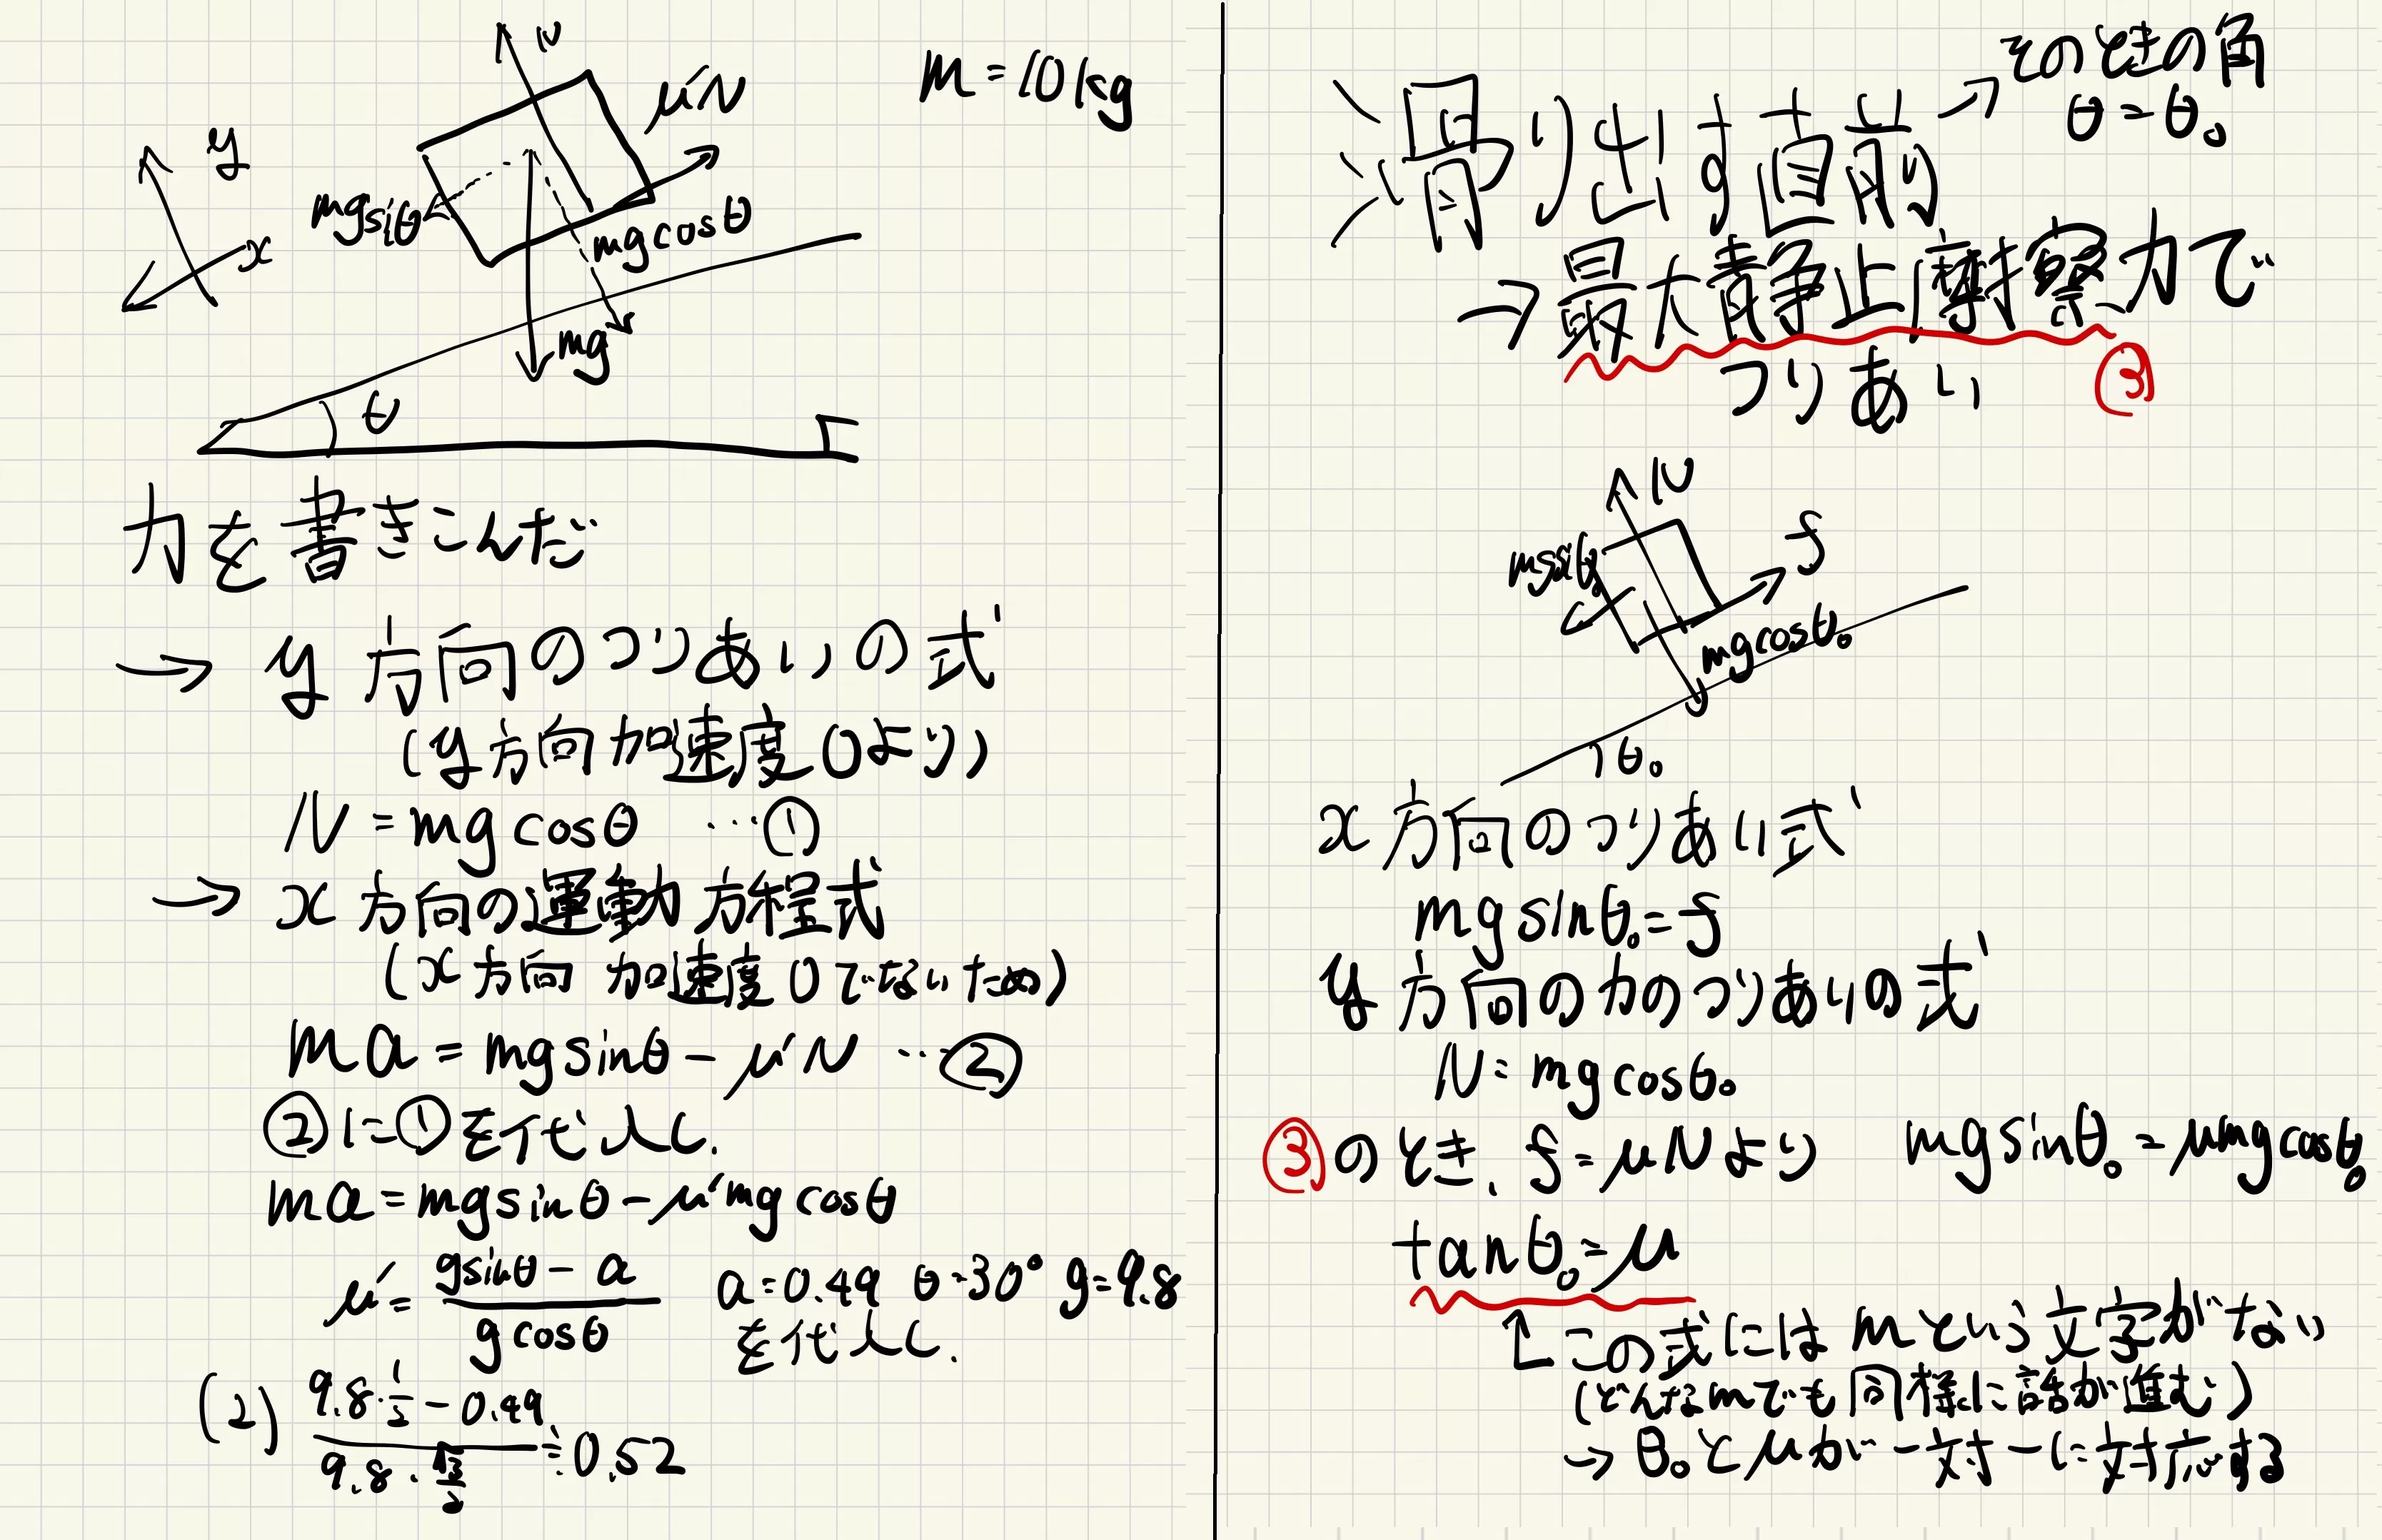 N
μ'N
m = 10kg
y
x
mgsiθ
mgcosθ
mg
θ
力を書きこんだ
→ y方向のつりあいの式
(y方向加速度0より)
N = mg cosθ …①
→ x方向の運動方程式
(x方向 加速度0でないため)
ma = mgsinθ - μ'N …②
②に①を代入し、
ma = mgsinθ - μ'mg cosθ
μ' = \frac{gsinθ - a}{g cosθ} a=0.49 θ=30° g=9.8
を代入し、
(2) \frac{9.8・\frac{1}{2} - 0.49}{9.8・\frac{√3}{2}} ≒ 0.52
滑り出す直前 → そのときの角
θ = θ₀
→ 最大静止摩擦力で
つりあい ③
N
f
mgsiθ₀
mgcosθ₀
θ₀
x方向のつりあい式
mg sinθ₀ = f
y方向の力のつりあいの式
N = mg cosθ₀
③のとき、f = μNより mg sinθ₀ = μmg cosθ₀
tanθ₀ = μ
↑この式にはmという文字がない
(どんなmでも同様に話が進む)
→ θ₀とμが一対一に対応する